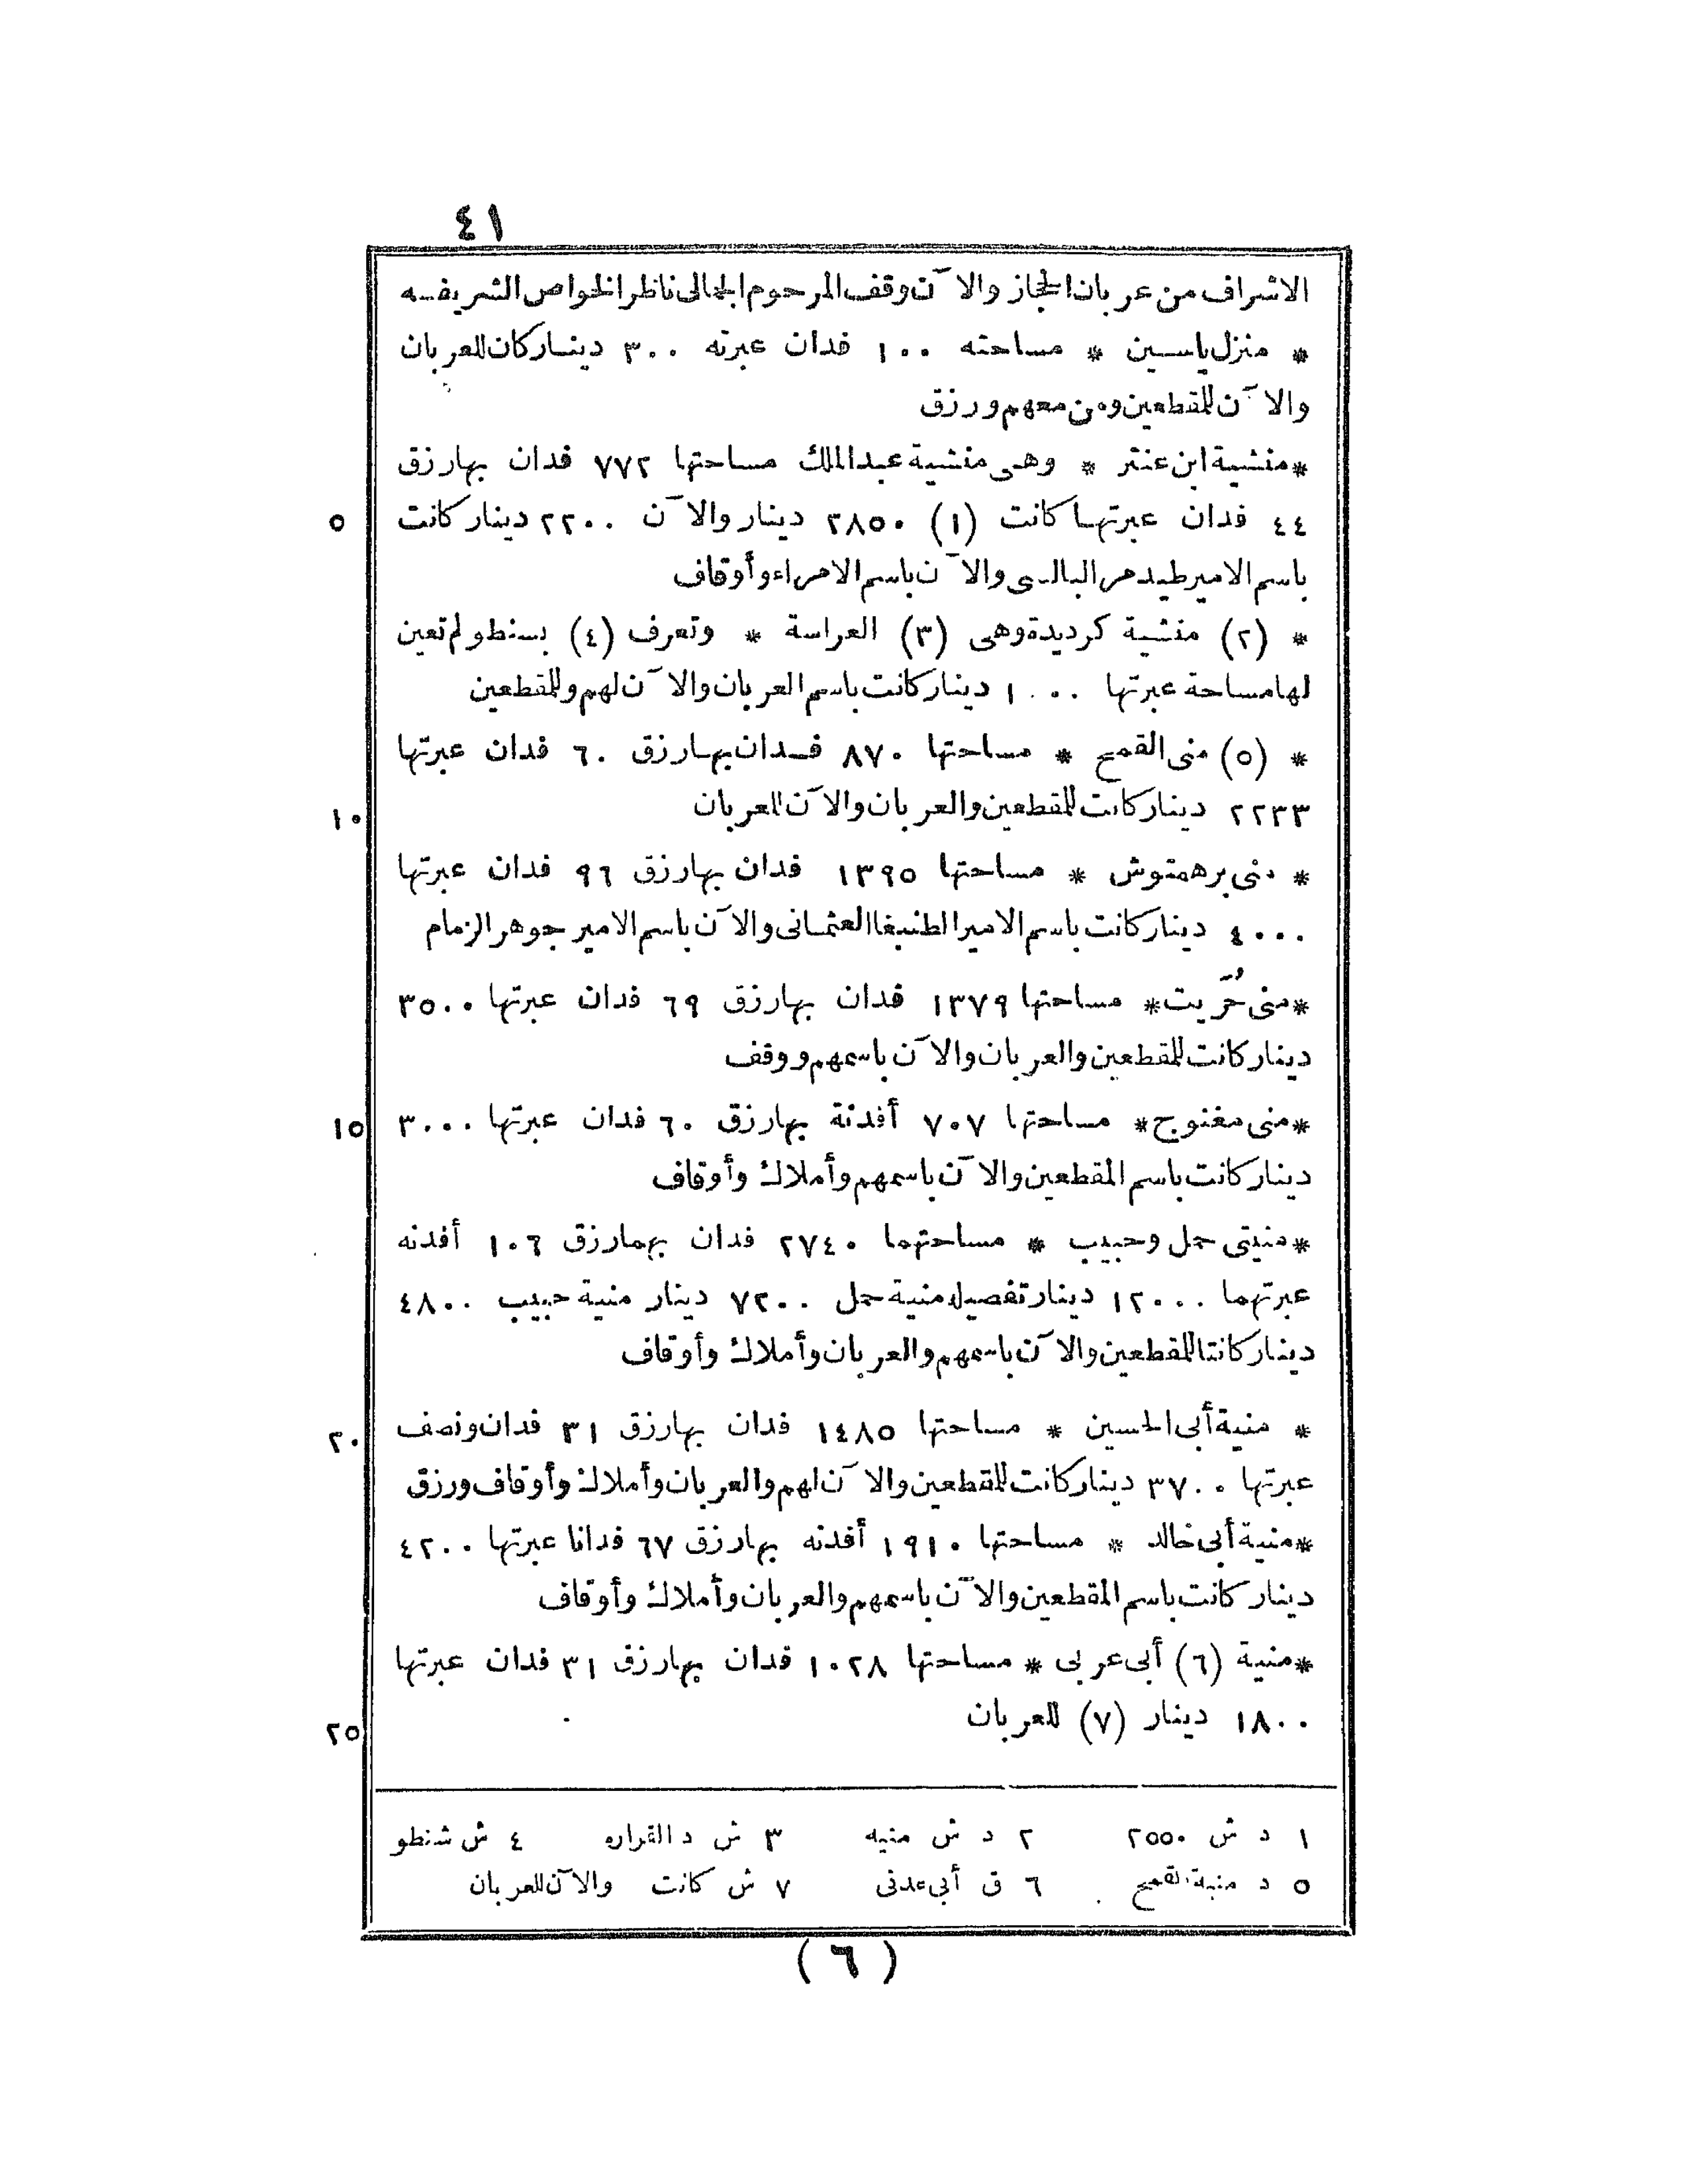 ٤١
الاشراف من عربان الحجاز والآن وقف المرحوم الجمالى ناظر الخواص الشريفه
* منزل ياسين * مساحته ١٠٠ فدان عبرته ٣٠٠ دينار كان للعربان
والآن للمقطعين ومن معهم ورزق
* منشية ابن عنتر * وهى منشية عبد الملك مساحتها ٧٧٢ فدان بها رزق
٥ ٤٤ فدان عبرتها كانت (١) ٢٨٥٠ دينار والآن ٢٢٠٠ دينار كانت
باسم الامير طيدمر البالسى والآن باسم الامراء وأوقاف
* (٢) منشية كرديدة وهى (٣) العراسة * وتعرف (٤) بسنطو لم تعين
لها مساحة عبرتها ١٠٠٠ دينار كانت باسم العربان والآن لهم وللمقطعين
* (٥) منى القمح * مساحتها ٨٧٠ فدان بها رزق ٦٠ فدان عبرتها
١٠ ٢٢٣٣ دينار كانت للمقطعين والعربان والآن للعربان
* منى برهمتوش * مساحتها ١٣٩٥ فدان بها رزق ٩٦ فدان عبرتها
٤٠٠٠ دينار كانت باسم الامير الطنبغا العثمانى والآن باسم الامير جوهر الزمام
* منى مساحتها ١٣٧٩ فدان بها رزق ٦٩ فدان عبرتها ٣٥٠٠
دينار كانت للمقطعين والعربان والآن باسمهم ووقف
١٥ * منى مغنوج * مساحتها ٧٠٧ أفدنة بها رزق ٦٠ فدان عبرتها ٣٠٠٠
دينار كانت باسم المقطعين والآن باسمهم وأملاك وأوقاف
* منيتى حمل وحبيب * مساحتهما ٢٧٤٠ فدان بهما رزق ١٠٦ أفدنه
عبرتهما ١٢٠٠٠ دينار تفصيله منية حمل ٧٢٠٠ دينار منية حبيب ٤٨٠٠
دينار كانتا للمقطعين والآن باسمهم والعربان وأملاك وأوقاف
٢٠ * منية أبى الحسين * مساحتها ١٤٨٥ فدان بها رزق ٣١ فدان ونصف
عبرتها ٣٧٠٠ دينار كانت للمقطعين والآن لهم والعربان وأملاك وأوقاف ورزق
* منية أبى خالد * مساحتها ١٩١٠ أفدنه بها رزق ٦٧ فدانا عبرتها ٤٢٠٠
دينار كانت باسم المقطعين والآن باسمهم والعربان وأملاك وأوقاف
* منية (٦) أبى عربى * مساحتها ١٠٢٨ فدان بها رزق ٣١ فدان عبرتها
٢٥ ١٨٠٠ دينار (٧) للعربان
١ د ش ٢٥٥٠ ٢ د ش منيه ٣ ش د القراره ٤ ش شنطو
٥ د منية القمح ٦ ق أبى عدنى ٧ ش كانت والآن للعربان
(٦)